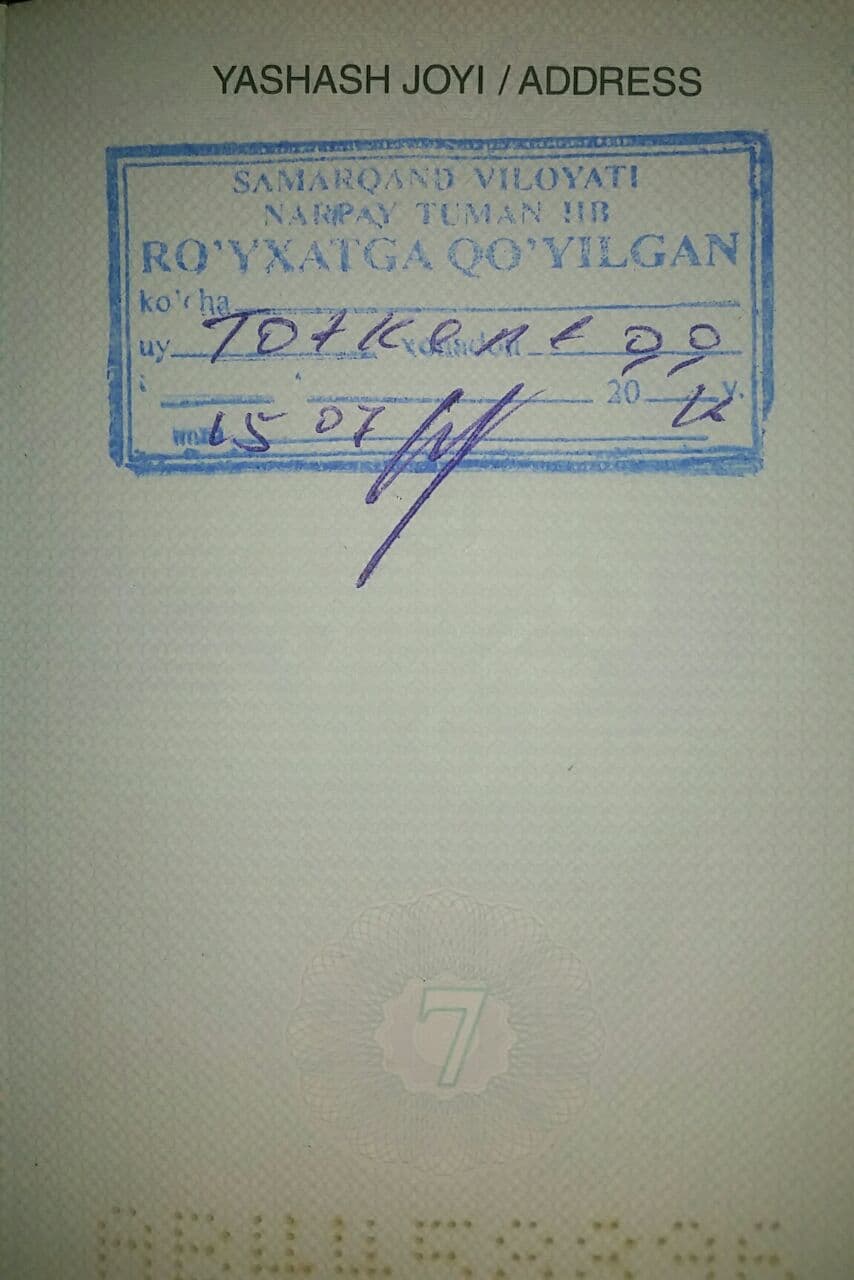 YASHASH JOYI / ADDRESS
SAMARQAND VILOYATI
NARPAY TUMAN IIB
RO'YXATGA QO'YILGAN
ko'cha
uy Totkent
20 y.
15 07
7